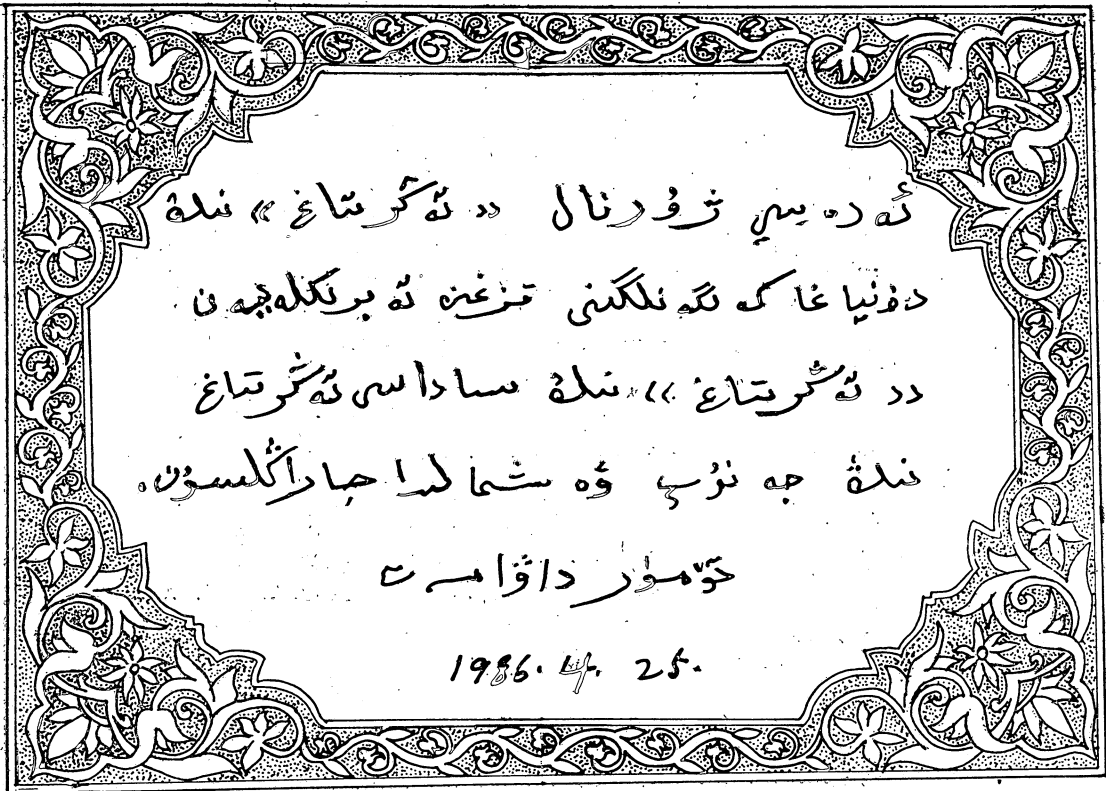 ئەدەبىي ژۇرنال «تەڭرىتاغ» نىڭ
دۇنياغا كەلگەنلىكىنى قىزغىن تەبرىكلەيمەن
«تەڭرىتاغ» نىڭ ساداسى تەڭرىتاغ
نىڭ جەنۇپ ۋە شىمالىدا جاراڭلىسۇن.
تۆمۈر داۋامەت
1986. 4. 25.